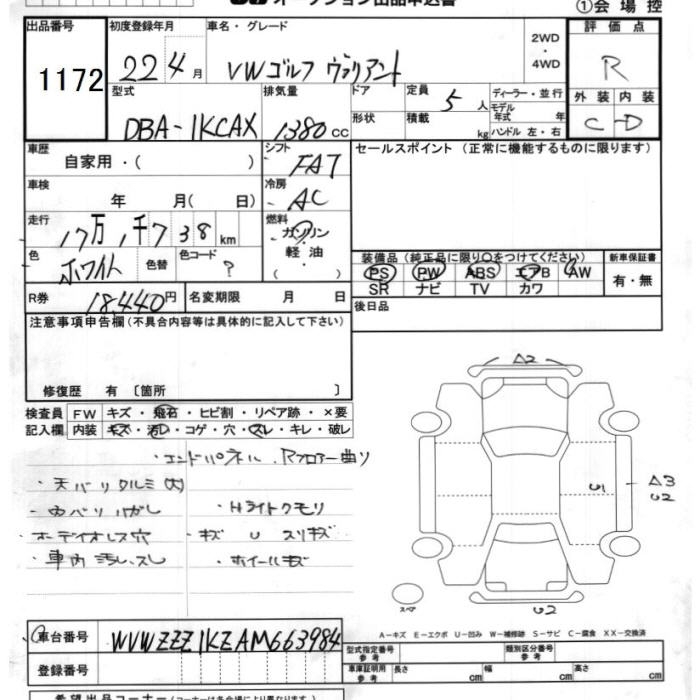 オークション出品申込書
①会場控
出品番号 初度登録年月 車名・グレード 2WD・4WD 評価点
1172 22 4月 VWゴルフ ヴァリアント R
型式 排気量 ドア 定員 5人 ディーラー・並行 外装 内装
DBA-1KCAX 1380cc 形状 積載 kg モデル年式 年 ハンドル 左・右 C D
車歴 シフト セールスポイント（正常に機能するものに限ります）
自家用・（ ） FAT
車検 冷房
年 月（ 日） AC
走行 17万 千738km 燃料 ガソリン
色 ホワイト 色替 色コード ? 軽油・（ ）
装備品（純正品に限り○をつけてください） 新車保証書
PS PW ABS エアB AW 有・無
SR ナビ TV カワ
R券 18,440円 名変期限 月 日 後日品
注意事項申告欄（不具合内容等は具体的に記入して下さい）
修復歴 有〔箇所 〕
検査員 FW キズ・飛石・ヒビ割・リペア跡・×要
記入欄 内装 キズ・汚レ・コゲ・穴・スレ・キレ・破レ
・エンドパネル、Rフロアー曲リ
・天バリクルミ(大)
・内バリハガレ ・Hライトクモリ
・オーデイオレス穴 ・キズ U スリキズ
・車内汚レ、スレ ・ホイールキズ
A2
U1
A3
U2
U2
スペア
A-キズ E-エクボ U-凹み W-補修跡 S-サビ C-腐食 XX-交換済
車台番号 WVWZZZ1KZAM663984
登録番号
型式指定番号 参考 類別区分番号 参考
車庫証明用 参考 長さ cm 幅 cm 高さ cm
希望出品コーナー（コーナーは各会場により異なります）